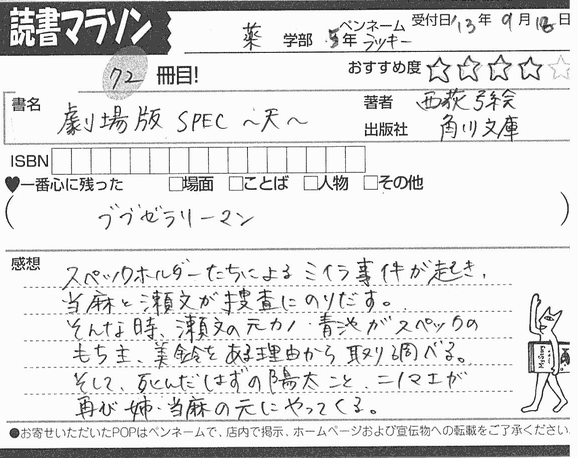 読書マラソン
薬 学部 5年 ペンネーム ラッキー 受付日 '13年 9月 18日
72 冊目! おすすめ度 ☆☆☆☆☆
書名 劇場版 SPEC ~天~
著者 西荻弓絵
出版社 角川文庫
ISBN
♥一番心に残った □場面 □ことば □人物 □その他
(ブブゼラリーマン)
感想
スペックホルダーたちによるミイラ事件が起き、
当麻と瀬文が捜査にのりだす。
そんな時、瀬文の元カノ・青池がスペックの
もち主、美鈴をある理由から取り調べる。
そして、死んだはずの陽太こと、ニノマエが
再び姉・当麻の元にやってくる。
●お寄せいただいたPOPはペンネームで、店内で掲示、ホームページおよび宣伝物への転載をご了承ください。